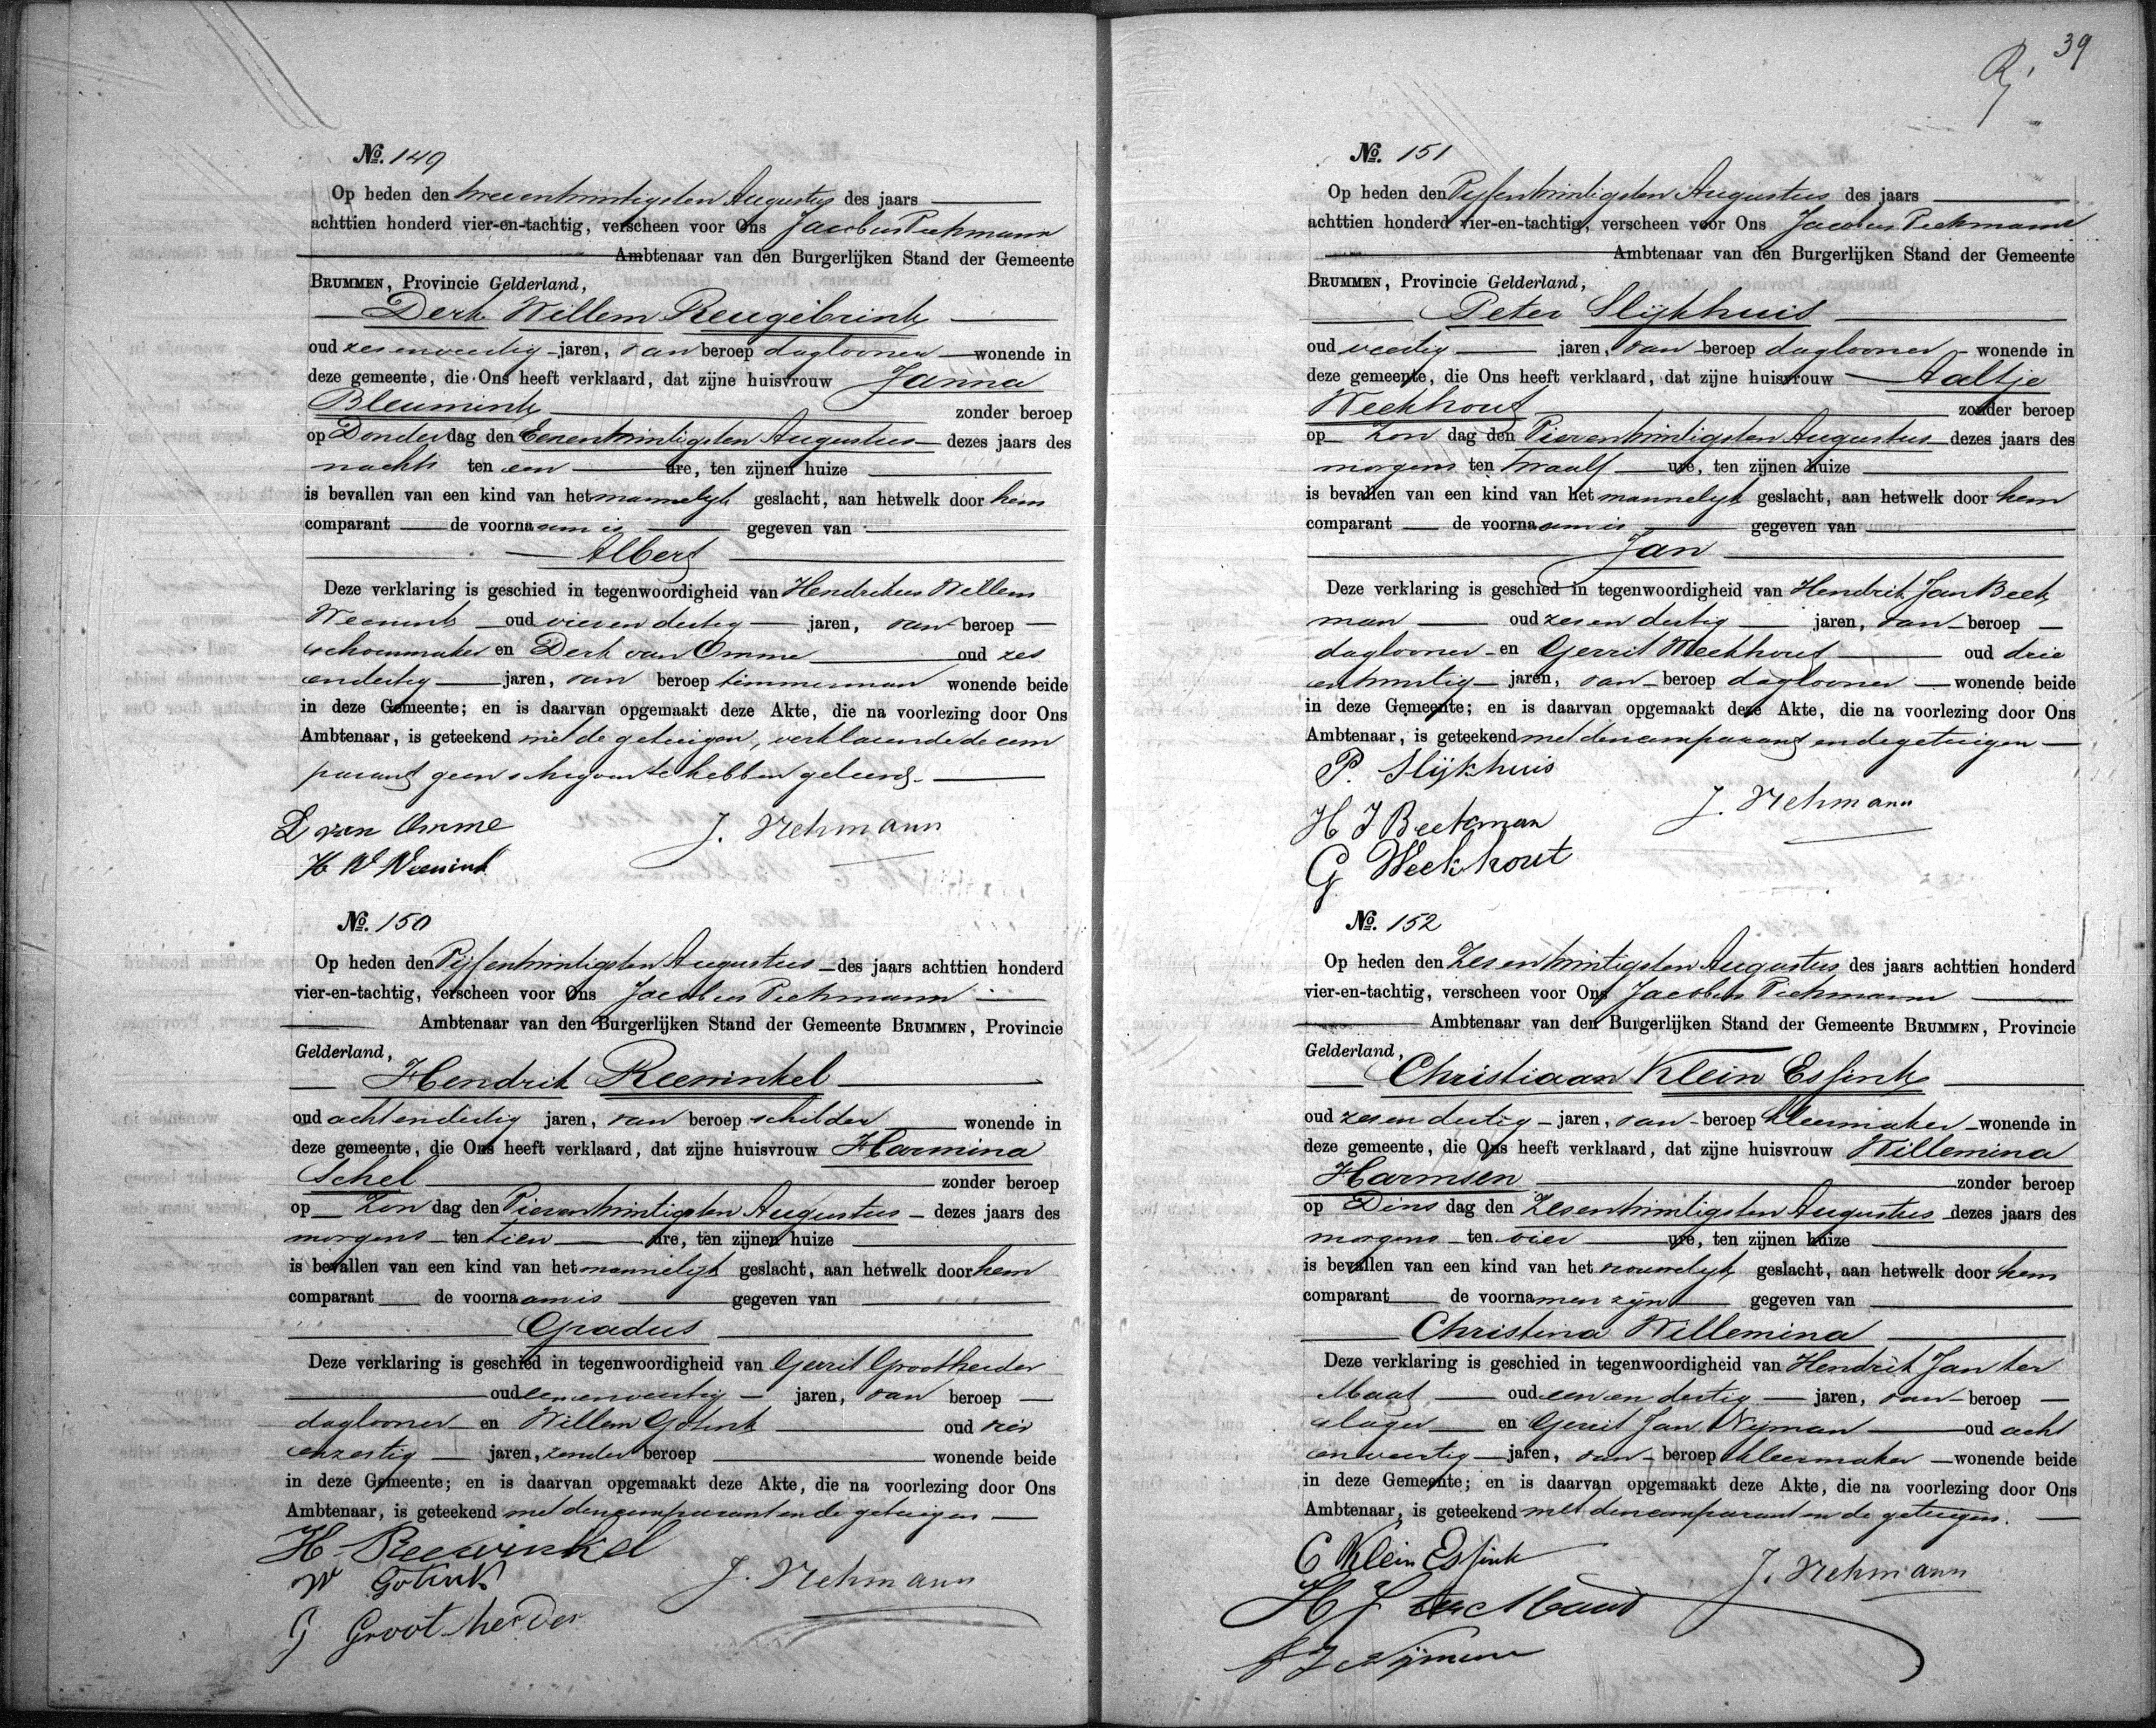 №. 149
Op heden den tweeentwintigsten Augustus des jaars
achttien honderd vier-en-tachtig, verscheen voor Ons Jacobus
Ambtenaar van den Burgerlijken Stand der Gemeente
BRUMMEN, Provincie Gelderland,
Derk Willem Reugebrink
oud zesenveertig jaren, van beroep daglooner wonende in
deze gemeente, die Ons heeft verklaard, dat zijne huisvrouw Janna
Bleumink zonder beroep
op Donderdag den Eenentwintigsten Augustus dezes jaars des
nachts ten een ure, ten zijnen huize
is bevallen van een kind van het mannelijk geslacht, aan hetwelk door hem
comparant de voornaam is gegeven van
Albert
Deze verklaring is geschied in tegenwoordigheid van Hendrikus Willem
Weenink oud vierendertig jaren, van beroep
schoenmaker en Derk van Omme oud zes
endertig jaren, van beroep timmerman wonende beide
in deze Gemeente; en is daarvan opgemaakt deze Akte, die na voorlezing door Ons
Ambtenaar, is geteekend met de getuigen, verklarende de com
parant geen schrijven te hebben geleerd.
D van Omme
J.
H W Weenink
№. 150
Op heden den Vijfentwintigsten Augustus des jaars achttien honderd
vier-en-tachtig, verscheen voor Ons Jacobus
Ambtenaar van den Burgerlijken Stand der Gemeente BRUMMEN, Provincie
Gelderland,
Hendrik Reewinkel
oud achtendertig jaren, van beroep schilder wonende in
deze gemeente, die Ons heeft verklaard, dat zijne huisvrouw Harmina
Schel zonder beroep
op Zondag den Vierentwintigsten Augustus dezes jaars des
morgens ten tien ure, ten zijnen huize
is bevallen van een kind van het mannelijk geslacht, aan hetwelk door hem
comparant de voornaam is gegeven van
Gradus
Deze verklaring is geschied in tegenwoordigheid van Gerrit Grootherder
oud eenenveertig jaren, van beroep
daglooner en Willem Gotink oud vier
enzestig jaren, zonder beroep wonende beide
in deze Gemeente; en is daarvan opgemaakt deze Akte, die na voorlezing door Ons
Ambtenaar, is geteekend met den comparant en de getuigen
H Reewinkel
W Gotink
J.
G Grootherder
39
№. 151
Op heden den Vijfentwintigsten Augustus des jaars
achttien honderd vier-en-tachtig, verscheen voor Ons Jacobus
Ambtenaar van den Burgerlijken Stand der Gemeente
BRUMMEN, Provincie Gelderland,
Peter Slijkhuis
oud veertig jaren, van beroep daglooner wonende in
deze gemeente, die Ons heeft verklaard, dat zijne huisvrouw Aaltje
Weekhout zonder beroep
op Zondag den Vierentwintigsten Augustus dezes jaars des
morgens ten twaalf ure, ten zijnen huize
is bevallen van een kind van het mannelijk geslacht, aan hetwelk door hem
comparant de voornaam is gegeven van
Jan
Deze verklaring is geschied in tegenwoordigheid van Hendrik Jan Beek
man oud zesendertig jaren, van beroep
daglooner en Gerrit Weekhout oud drie
entwintig jaren, van beroep daglooner wonende beide
in deze Gemeente; en is daarvan opgemaakt deze Akte, die na voorlezing door Ons
Ambtenaar, is geteekend met den comparant en de getuigen
P. Slijkhuis
J.
H J Beekman
G Weekhout
№. 152
Op heden den Zesentwintigsten Augustus des jaars achttien honderd
vier-en-tachtig, verscheen voor Ons Jacobus
Ambtenaar van den Burgerlijken Stand der Gemeente BRUMMEN, Provincie
Gelderland,
Christiaan Klein Essink
oud zesendertig jaren, van beroep kleermaker wonende in
deze gemeente, die Ons heeft verklaard, dat zijne huisvrouw Willemina
Harmsen zonder beroep
op Dinsdag den Zesentwintigsten Augustus dezes jaars des
morgens ten vier ure, ten zijnen huize
is bevallen van een kind van het vrouwelijk geslacht, aan hetwelk door hem
comparant de voornamen zijn gegeven van
Christina Willemina
Deze verklaring is geschied in tegenwoordigheid van Hendrik Jan ter
Maat oud eenendertig jaren, van beroep
slager en Gerrit Jan Nijman oud acht
enveertig jaren, van beroep kleermaker wonende beide
in deze Gemeente; en is daarvan opgemaakt deze Akte, die na voorlezing door Ons
Ambtenaar, is geteekend met den comparant en de getuigen.
C Klein Essink
J.
H J ter Maat
G J Nijman